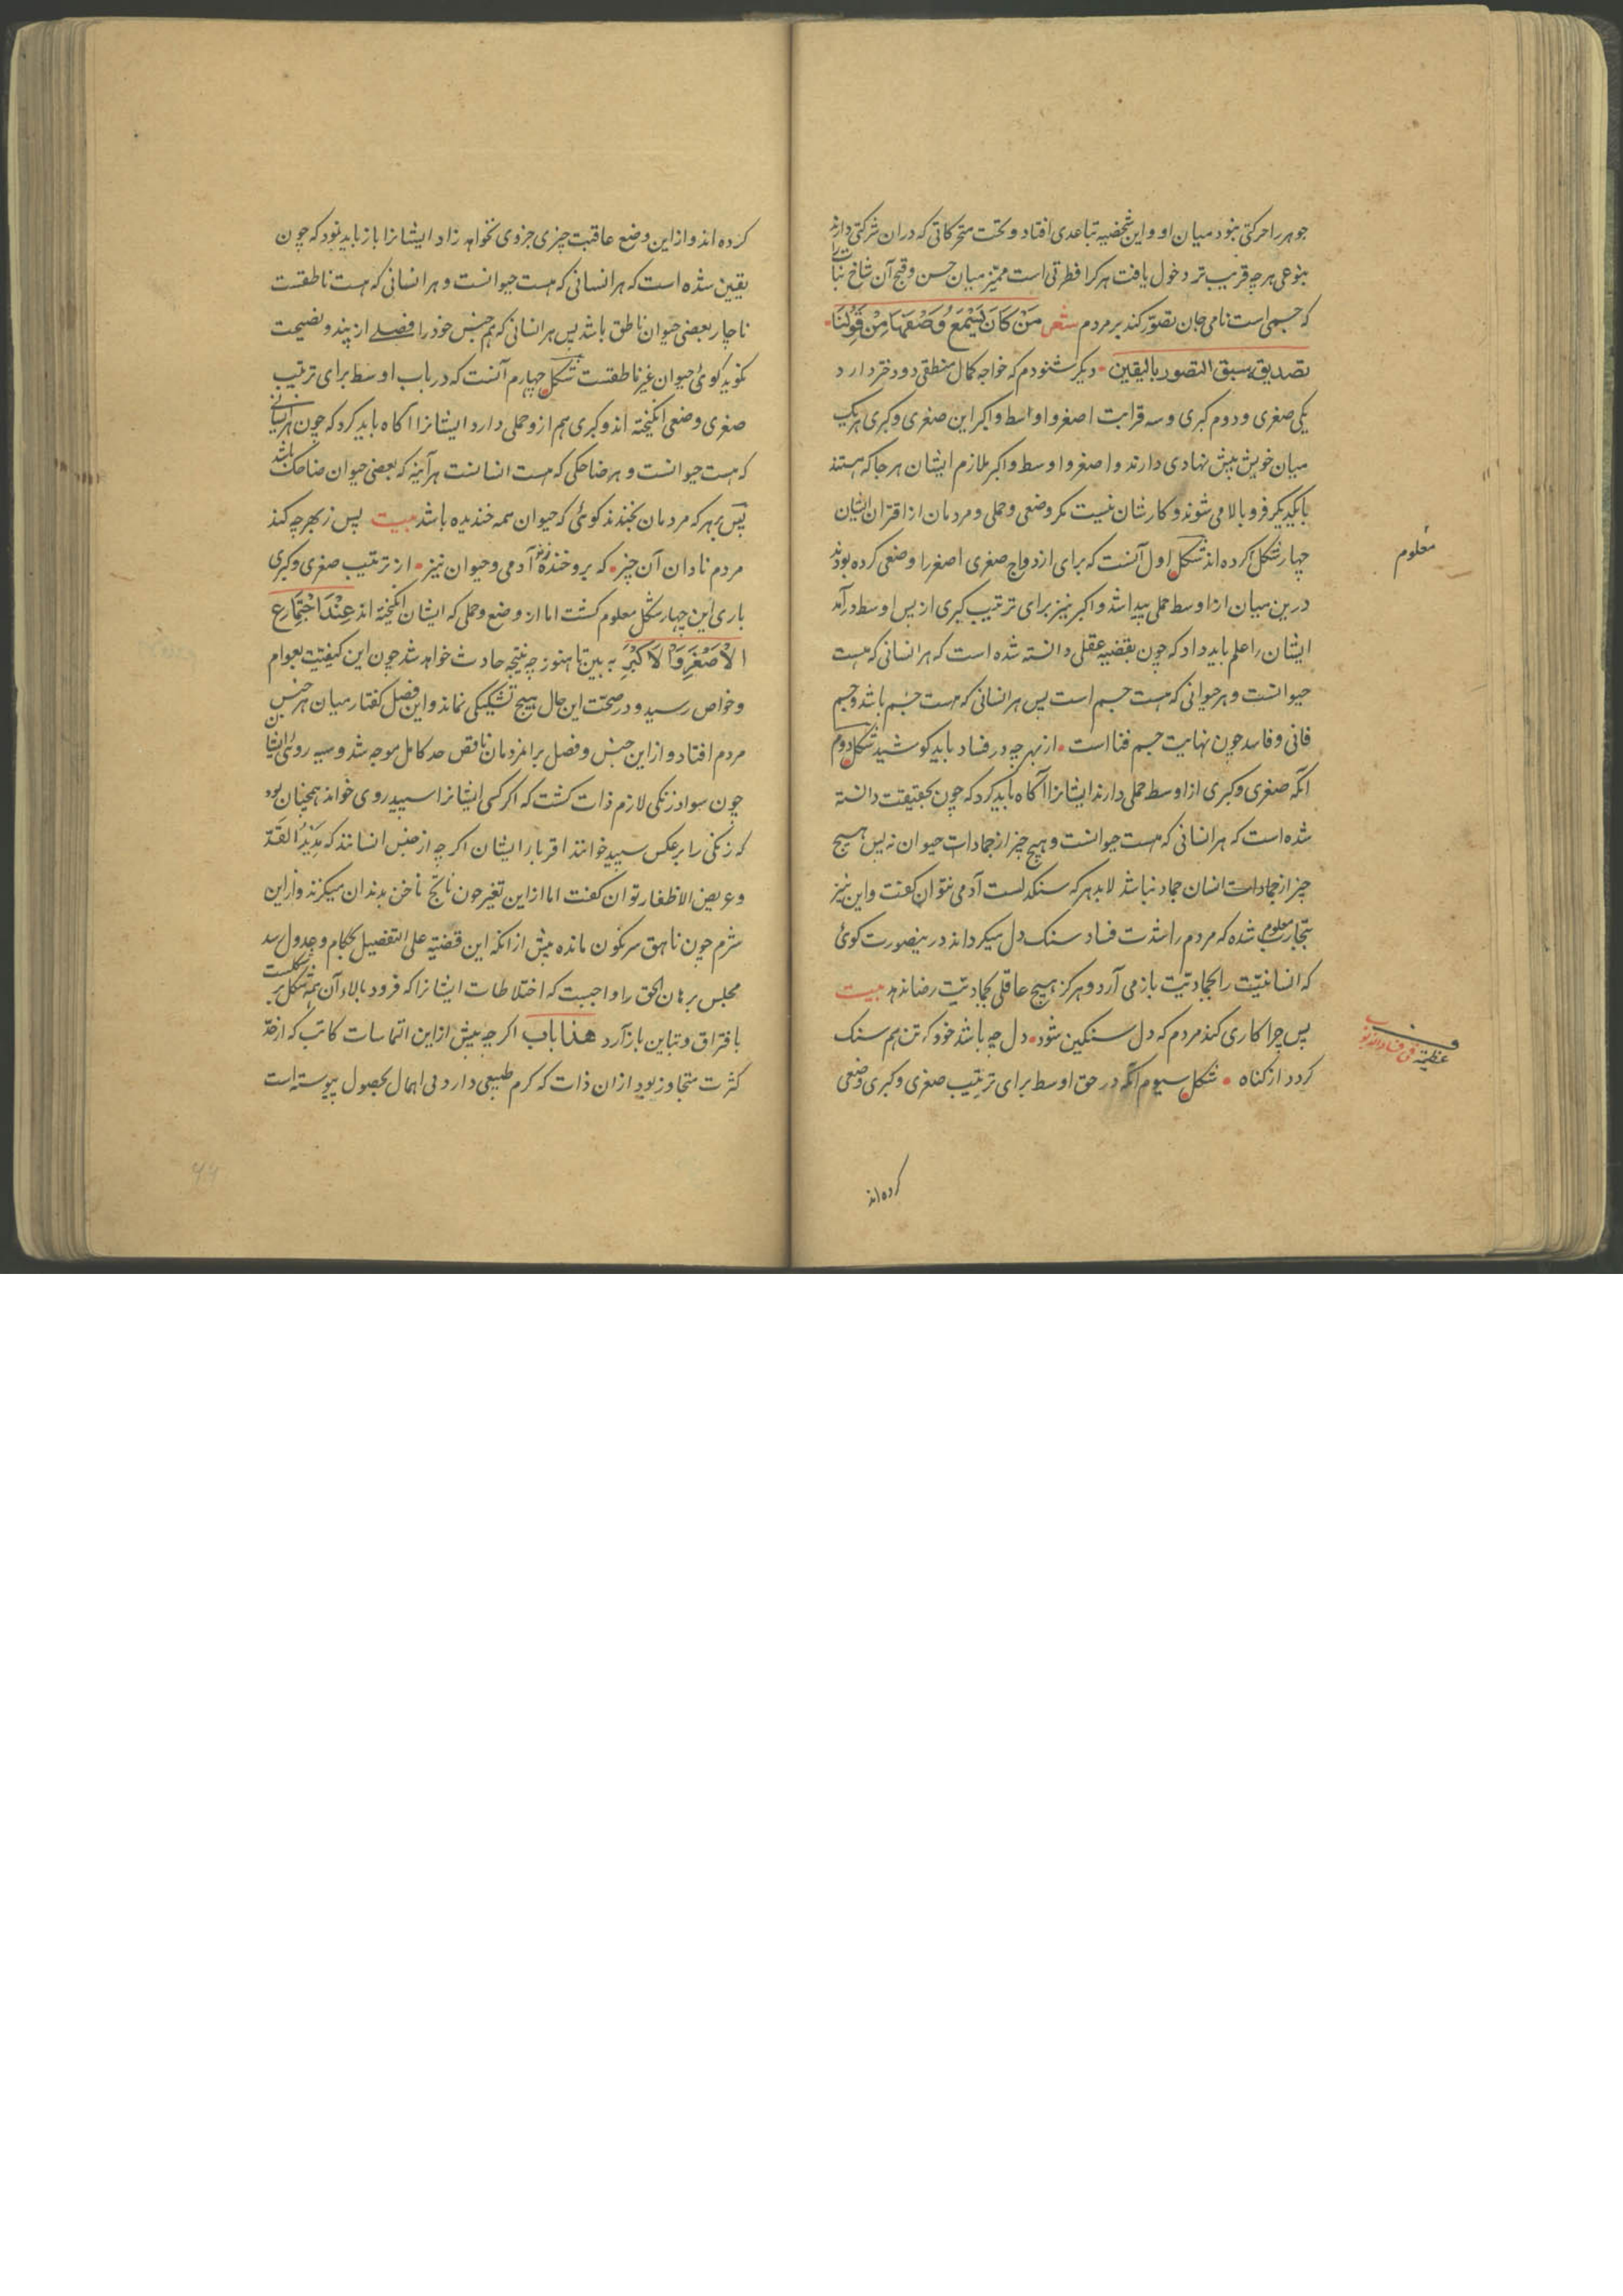 جوهر را حرکتی نبود میان او و این شخصیه تباعدی افتاد و تحت متحرکاتی که دران شرکتی دارند
بنوعی هر چه قریب تر دخول یافت هر کرا فطرتی است ممیز میان حسن و قبح آن شاخ نبات را
که جسمی است نامی جان تصور کند بر مردم شعر مَنْ کَانَ یَسْمَعُ وَصْفَهَا مِنْ قَوْلِنَا
تصدیقه سبق التصور بالیقین دیگر شنودم که خواجه کمال منطقی دو دختر دارد
یکی صغری و دوم کبری و سه قرابت اصغر و اوسط و اکبر این صغری و کبری هر یک
میان خویش بیش نهادی دارند و اصغر و اوسط و اکبر ملازم ایشان هر جا که هستند
با یکدیکر فرو بالا می شوند و کارشان نیست مکر وضعی و حملی و مردمان از اقتران ایشان
چهار شکل کرده اند شکل اول آنست که برای ازدواج صغری اصغر را وضعی کرده بودند
درین میان از اوسط حملی پیدا شد و اکبر نیز برای ترتیب کبری از پس اوسط درآمد
ایشان را علم باید داد که چون بقضیه عقلی دانسته شده است که هر انسانی که هست
حیوانست و هر حیوانی که هست جسم است پس هر انسانی که هست جسم باشد و جسم
فانی و فاسد چون نهایت جسم فنا است از بهر چه در فساد باید کوشید شکل دوم
آنکه صغری و کبری از اوسط حملی دارند ایشانرا آکاه باید کرد که چون بحقیقت دانسته
شده است که هر انسانی که هست حیوانست و هیچ چیز از جمادات حیوان نه پس هیچ
چیز از جمادات انسان جماد نباشد لابد هر که سنکدلست آدمی نتوان کفت و این نیز
بتجارب معلوم شده که مردم را شدت فساد سنک دل میکرداند درینصورت کوئی
که انسانیّت را بجمادیّت باز می آرد و هرکز هیچ عاقلی بجمادیّت رضا ندهد بیت
پس چرا کاری کند مردم که دل سنکین شود دل چه باشد خود که تن هم سنک
کردد از کناه شکل سیوم آنکه در حق اوسط برای ترتیب صغری و کبری وضعی
کرده اند
معلوم
کرده اند و از این وضع عاقبت چیزی جزوی نخواهد زاد ایشانرا باز باید نمود که چون
یقین شده است که هر انسانی که هست حیوانست و هر انسانی که هست ناطقست
ناچار بعضی حیوان ناطق باشد پس هر انسانی که هم جنس خود را فصلی از پند و نصیحت
نکوید کوئی حیوان غیر ناطقست شکل چهارم آنست که در باب اوسط برای ترتیب
صغری وضعی انکیخته اند و کبری هم ازو حملی دارد ایشانرا آکاه باید کرد که چون هر انسانی
که هست حیوانست و هر ضاحکی که هست انسانست هر آینه که بعضی حیوان ضاحک باشد
پس بر هر که مردمان بخندند کوئی که حیوان همه خندیده باشد بیت پس ز بهر چه کند
مردم نادان آن چیز که برو خنده زند آدمی و حیوان نیز از ترتیب صغری و کبری
باری این چهار شکل معلوم کشت اما از وضع و حملی که ایشان انکیخته اند عِنْدَ اجْتِمَاعِ
الْاَصْغَرِ وَالْاَکْبَرِ به بین تا هنوز چه نتیجه حادث خواهد شد چون این کیفیت بعوام
و خواص رسید و در صحت این حال هیچ تشکیکی نماند و این فصل کفتار میان هر جنس
مردم افتاد و از این جنس و فصل برآمزدمان ناقص حد کامل موجه شد و سیه روئی ایشان
چون سواد زنکی لازم ذات کشت که اکر کسی ایشانرا سپید روی خواند همچنان بود
که زنکی را بر عکس سپید خوانند اقربا را ایشان اکرچه از جنس انسانند که مَدِیدُ القَدّ
و عریض الاظفار توان کفت اما از این تغیر چون نابح ناخن بدندان میکزند و از این
شرم چون ناهق سرنکون مانده پیش ازانکه این قضیه علی التفصیل بحکام و عدول رسد
مجلس برهان الحق را واجبست که اختلاطات ایشانرا که فرود بالاء آن همه شکل بر شکلست
بافتراق و تباین باز آرد هذا باب اکرچه پیش از این التماسات کاتب که از حد
کثرت متجاوز بود ازان ذات که کرم طبیعی دارد بی اهمال بحصول پیوسته است